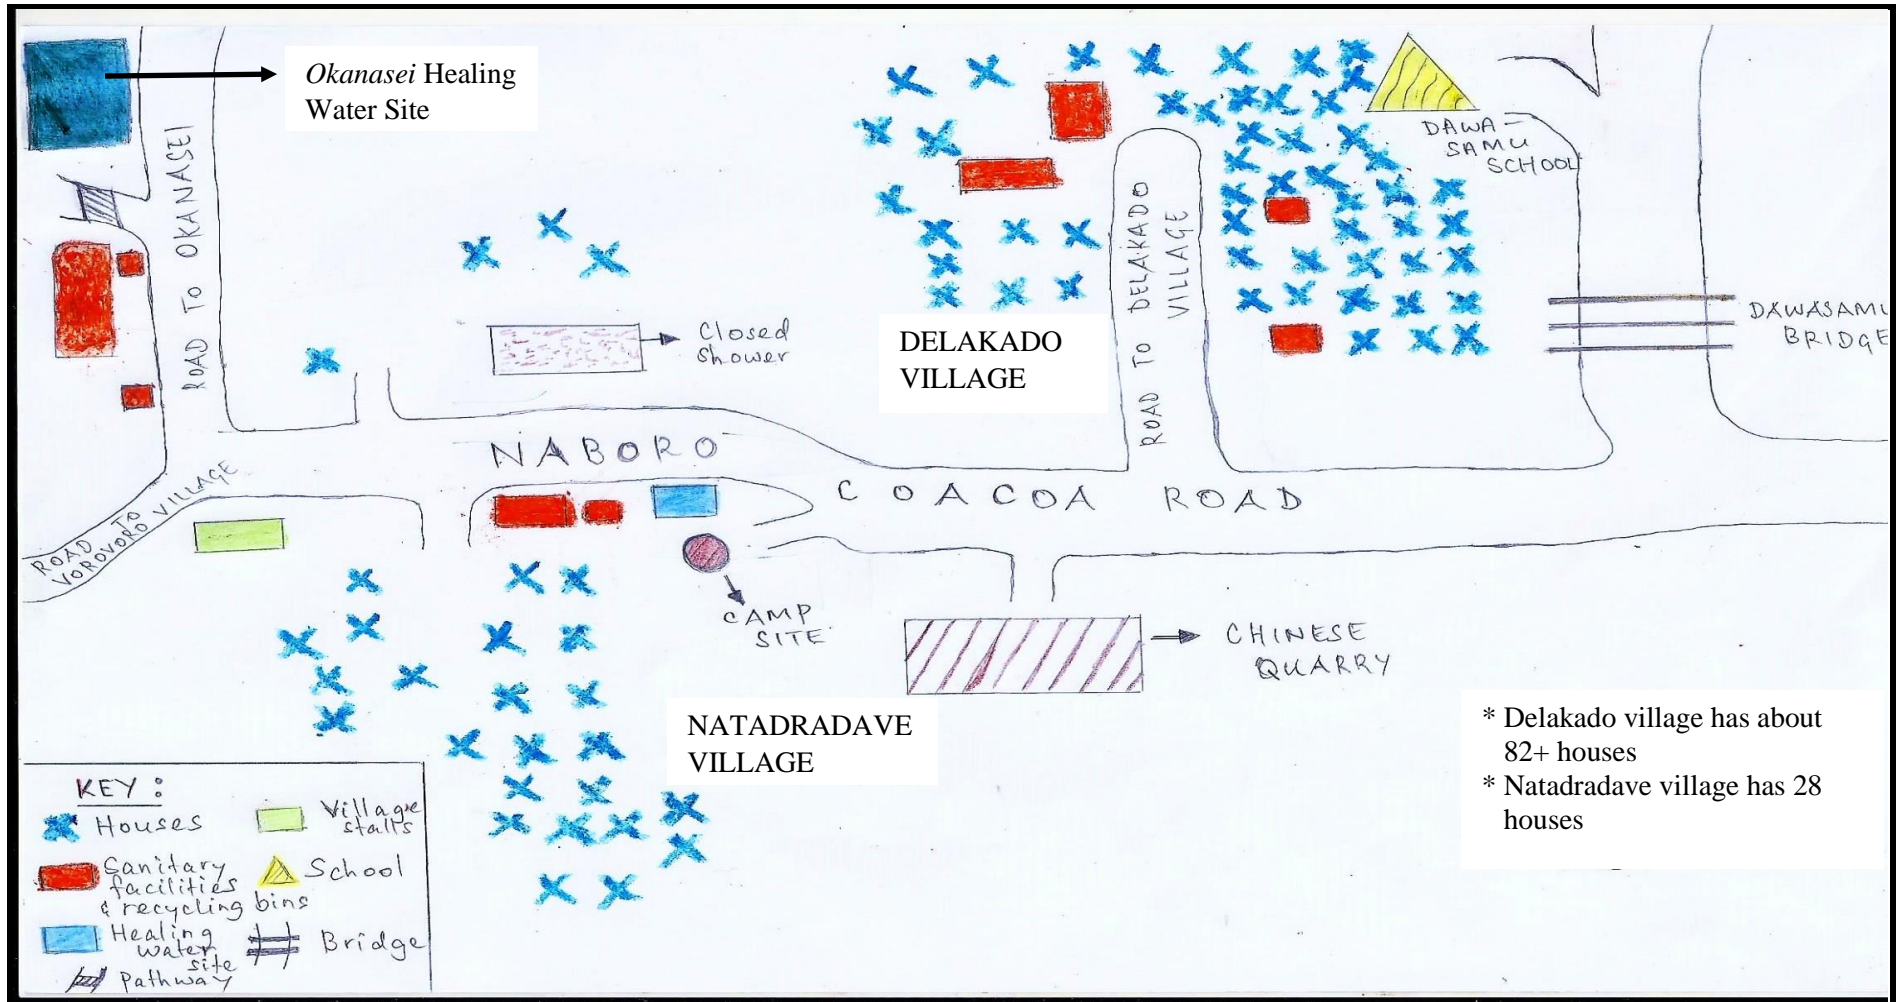 Okanasei Healing
Water Site
ROAD TO OKANASEI
DAWA-
SAMU
SCHOOL
ROAD TO DELAKADO
VILLAGE
Closed
shower
DELAKADO
VILLAGE
DAWASAMU
BRIDGE
NABORO
COACOA ROAD
ROAD TO
VOROVORO VILLAGE
CAMP
SITE
CHINESE
QUARRY
NATADRADAVE
VILLAGE
* Delakado village has about
82+ houses
* Natadradave village has 28
houses
KEY:
Houses
Village
stalls
Sanitary
facilities
& recycling bins
School
Healing
water
site
Bridge
Pathway